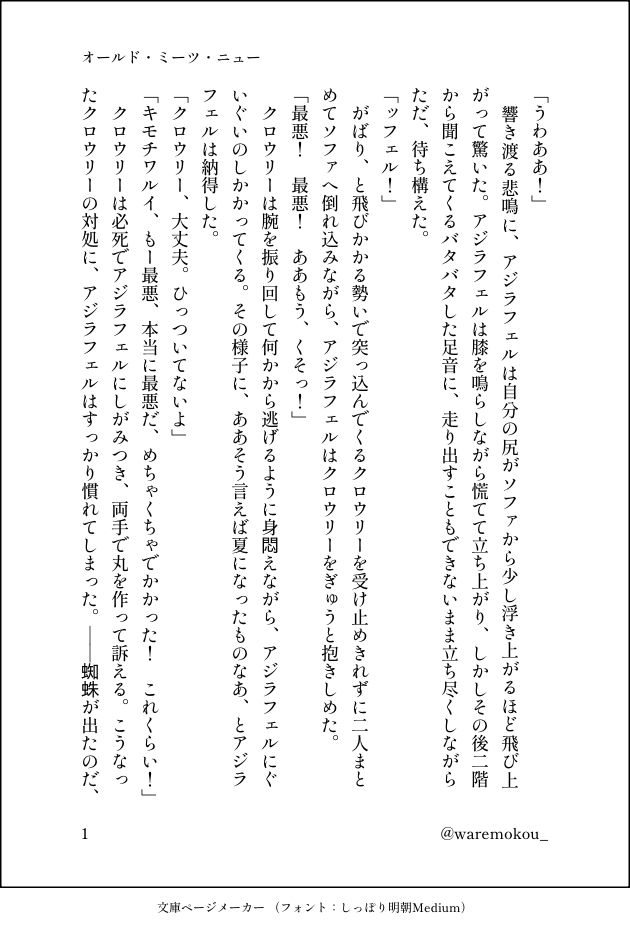 オールド・ミーツ・ニュー
「うわああ！」
　響き渡る悲鳴に、アジラフェルは自分の尻がソファから少し浮き上がるほど飛び上
がって驚いた。アジラフェルは膝を鳴らしながら慌てて立ち上がり、しかしその後二階
から聞こえてくるバタバタした足音に、走り出すこともできないまま立ち尽くしながら
ただ、待ち構えた。
「ッフェル！」
　がばり、と飛びかかる勢いで突っ込んでくるクロウリーを受け止めきれずに二人まと
めてソファへ倒れ込みながら、アジラフェルはクロウリーをぎゅうと抱きしめた。
「最悪！　最悪！　ああもう、くそっ！」
　クロウリーは腕を振り回して何かから逃げるように身悶えながら、アジラフェルにぐ
いぐいのしかかってくる。その様子に、ああそう言えば夏になったものなあ、とアジラ
フェルは納得した。
「クロウリー、大丈夫。ひっついてないよ」
「キモチワルイ、もー最悪、本当に最悪だ、めちゃくちゃでかかった！　これくらい！」
　クロウリーは必死でアジラフェルにしがみつき、両手で丸を作って訴える。こうなっ
たクロウリーの対処に、アジラフェルはすっかり慣れてしまった。――蜘蛛が出たのだ、
1
@waremokou_
文庫ページメーカー（フォント：しっぽり明朝Medium）